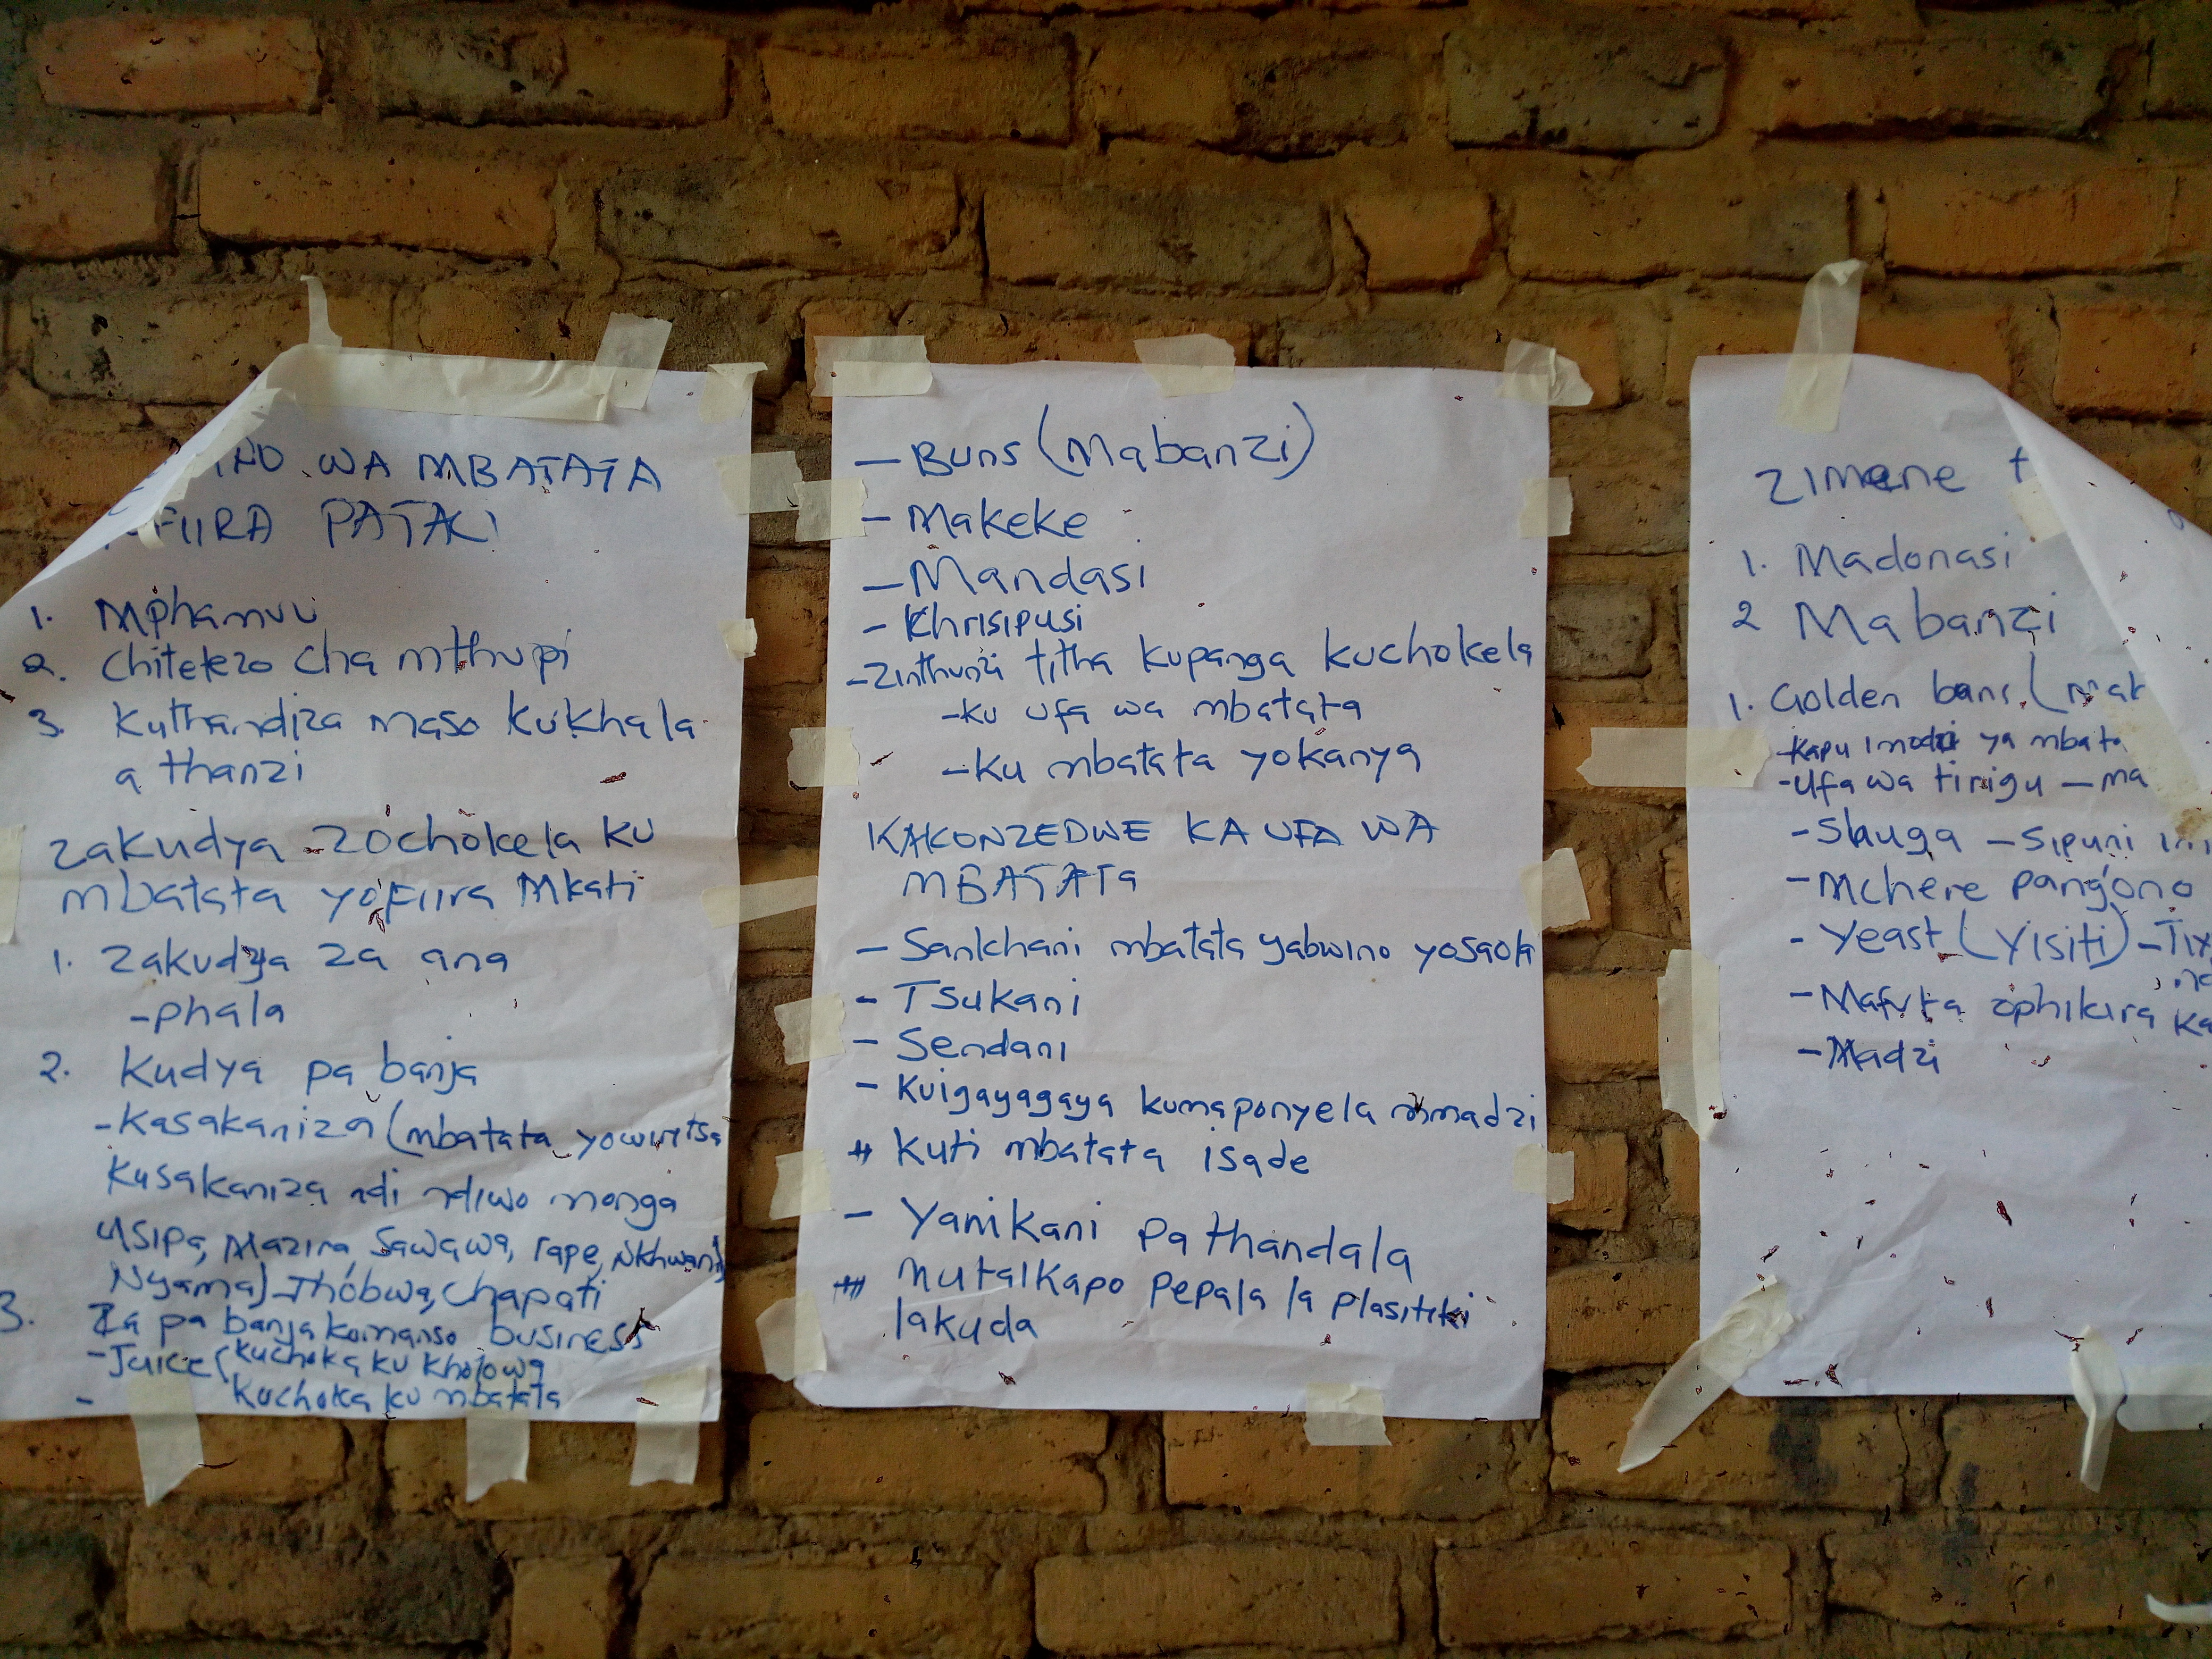 WA MBATATA
PATALI
1. Mphamvu
2. Chitetezo cha mthupi
3. Kuthandiza maso kukhala
a thanzi
Zakudya zochokela ku
mbatata yofiira Mkati
1. Zakudya za ana
- Phala
2. Kudya pa banja
- Kasakaniza (mbatata yowiritsa
Kusakaniza ndi ndiwo monga
Usipa, Mazira, Sawawa, rape, Nkhwani,
Nyama) - Thobwa, Chapati
3. Za pa banja komanso business
- Juice (Kuchoka ku kholowa
- Kuchoka ku mbatata
- Buns (Mabanzi)
- Makeke
- Mandasi
- Khrisipusi
- Zinthunzi titha kupanga kuchokela
- Ku ufa wa mbatata
- Ku mbatata yokanya
KAKONZEDWE KA UFA WA
MBATATA
- Sankhani mbatata yabwino yosaola
- Tsukani
- Sendani
- Kuigayagaya kumaponyela mmadzi
# Kuti mbatata isade
- Yanikani pa thandala
# Mutalkapo pepala la plasitiki
lakuda
Zimene
1. Madonasi
2 Mabanzi
1. Golden bans (mak
- Kapu imodzi ya mbata
- Ufa wa tirigu - ma
- Shuga - Sipuni
- Mchere pang'ono
- Yeast (Yisiti) -
- Mafuta ophikira ka
- Madzi